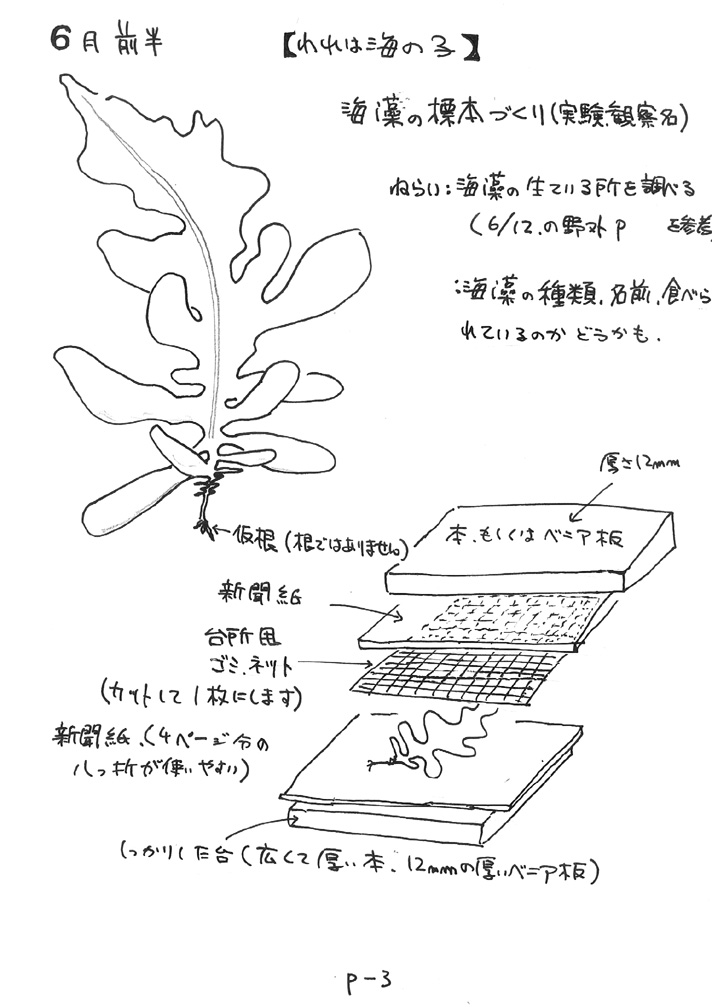 6月 前半
【われは海の子】
海藻の標本づくり(実験観察名)
ねらい:海藻の生ている所を調べる
(6/12.の野外P を参考
:海藻の種類、名前、食べら
れているのかどうかも.
厚さ12mm
本、もしくはベニア板
←仮根(根ではありません)
新聞紙
台所用
ゴミ.ネット
(カットして1枚にします)
新聞紙.(4ページ分の
八つ折が使いやすい)
しっかりした台(広くて厚い本、12mmの厚いベニア板)
P-3